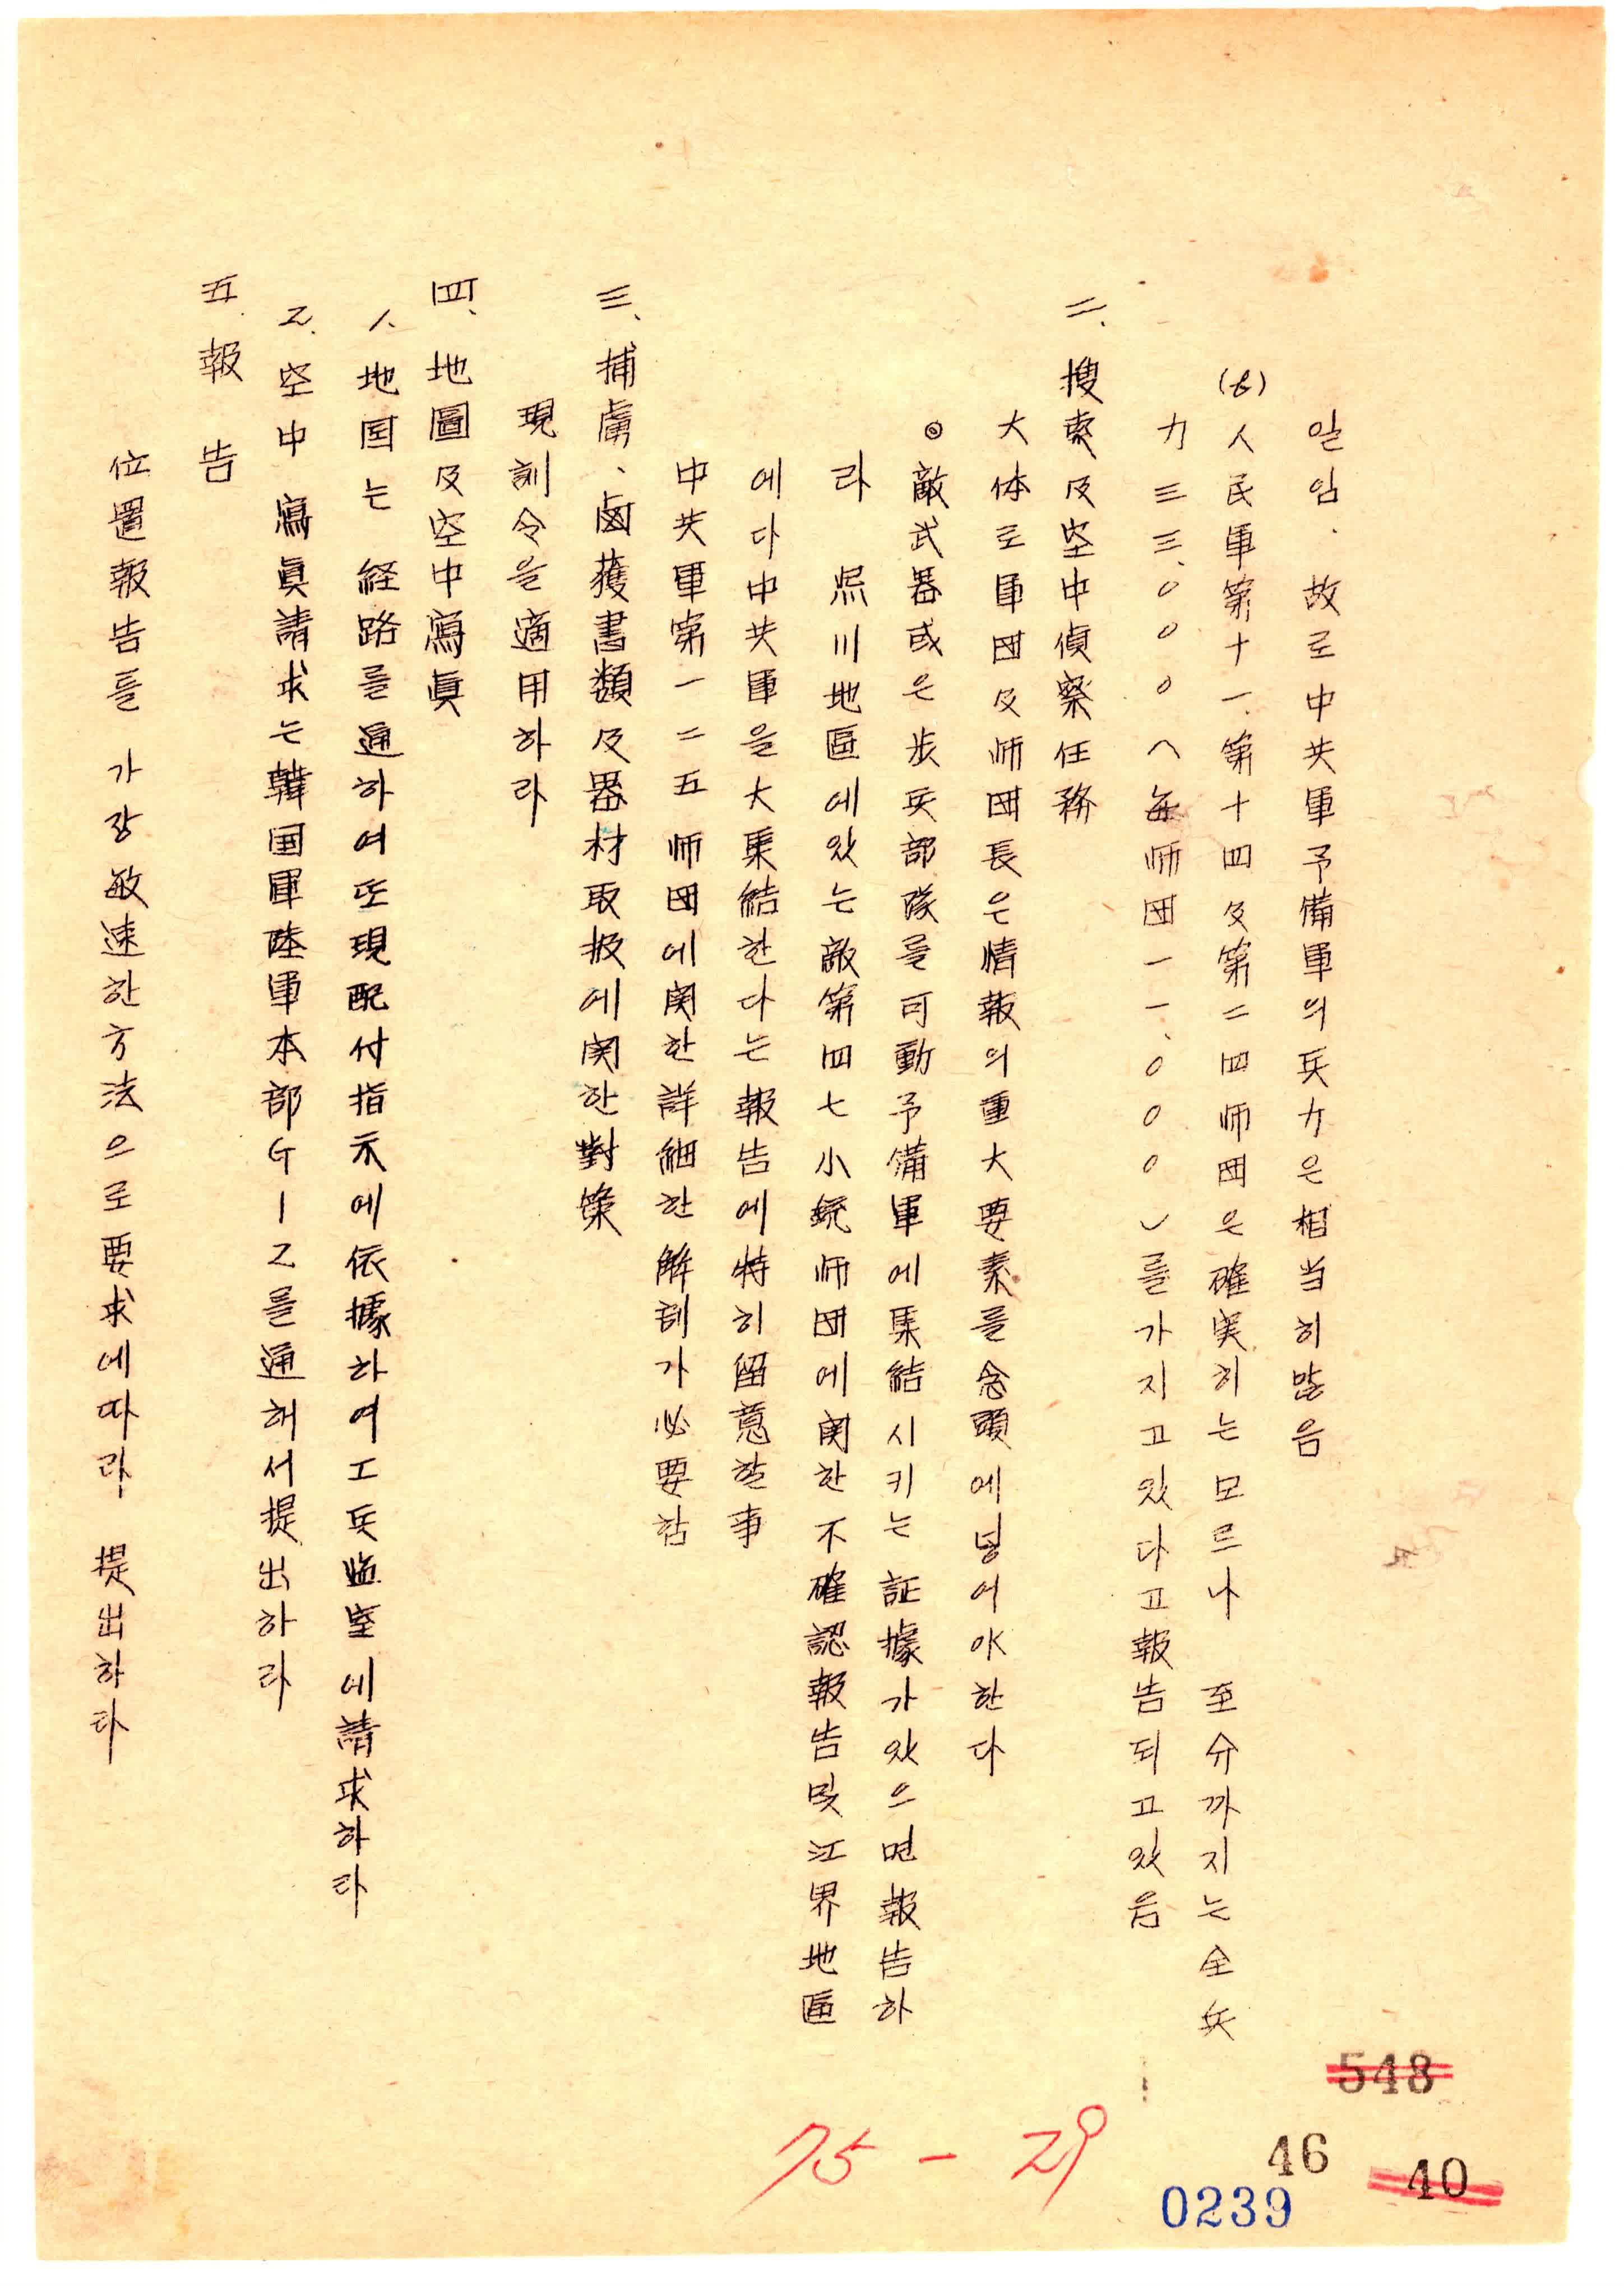 일임. 故로 中共軍予備軍의 兵力은 相当히 많음
(b) 人民軍第十一、第十四及第二四师団은 確実히는 모르나 至今까지는 全兵
力三三、000〈每师団一一、000〉를 가지고 있다고 報告되고 있음
二、搜索及空中偵察任務
大体로 軍団及师団長은 情報의 重大要素를 念頭에 넣어야 한다
◎敵武器或은 步兵部隊를 可動予備軍에 集結시키는 証據가 있으면 報告하
라 熙川地區에 있는 敵第四七小銃师団에 関한 不確認報告및 江界地區
에다 中共軍을 大集結한다는 報告에 特히 留意할 事
中共軍第一二五师団에 関한 詳細한 解剖가 必要함
三、捕虜、鹵獲書類及器材取扱에 関한 對策
現訓令을 適用하라
四、地圖及空中寫眞
1. 地国는 経路를 通하여 또 現配付指示에 依據하여 工兵監室에 請求하라
2. 空中寫眞請求는 韓国軍陸軍本部 G-2를 通해서 提出하라
五. 報告
位置報告를 가장 敏速한 方法으로 要求에 따라 提出하라
548
46
40
75-29
0239